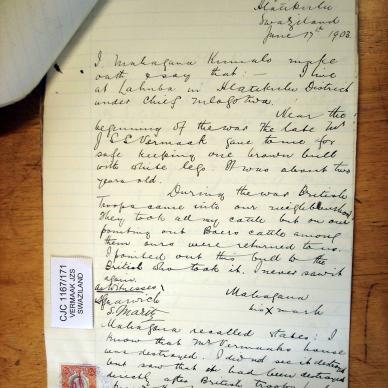 Hlatikulu
Swaziland
June 17th 1903
I Mahagana Kumalo make
oath & say that :- I live
at Lahuba in Hlatikulu District
under Chief Mlogotwa.
Near the
beginning of the war the late Mr
J S L Vermaak gave to me for
safe keeping one brown bull
with white legs. It was about two
years old.
During the war British
Troops came into our neighbourhood.
They took all my cattle but on our
pointing out Boers cattle among
them ours were returned to us.
I pointed out this bull to the
British who took it. I never saw it
again.
as Witnesses
Mahagana
his X mark
S. Maritz
Mahagana recalled states: I
know that Mr Vermaaks house
was destroyed. I did not see it destroyed
but saw that it had been destroyed
directly after British troops
CJC 1167/171
VERMAAK JZS
SWAZILAND